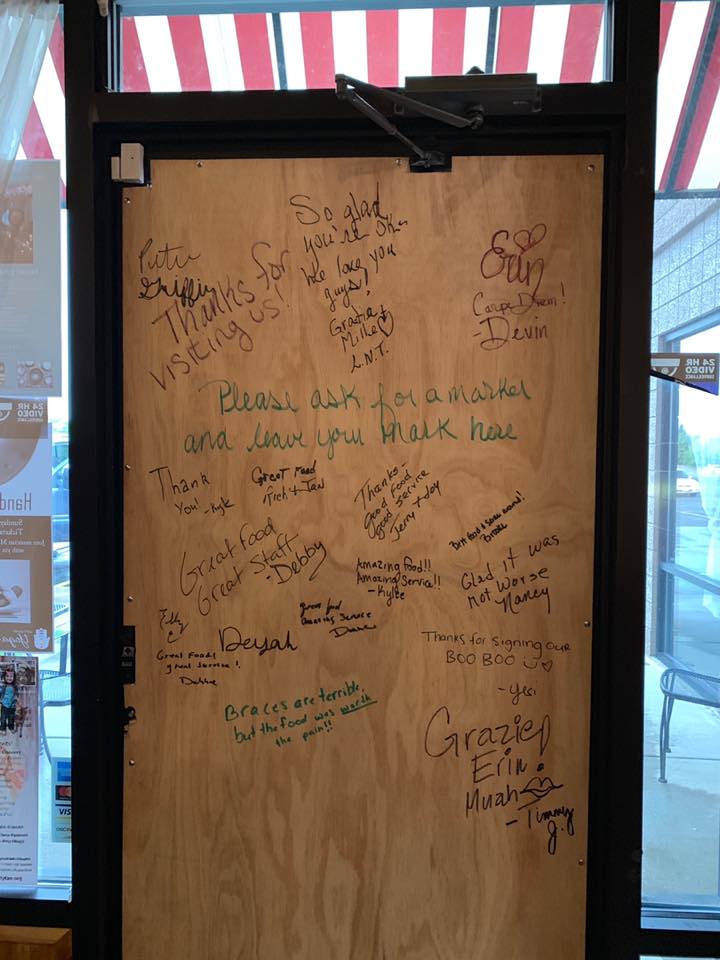 So glad
you're OK
We love you
guys!
Grazie
Mike
L.N.T.
Griffin
Thanks for
visiting us!
Erin
Carpe Diem!
- Devin
Please ask for a marker
and leave your mark here
Thank
You! - Kyle
Great Food
Thanks -
Good Food
Good Service
Jerry + Joy
Great Food
Great Staff
- Debby
Amazing Food!!
Amazing Service!!
- Kylee
Glad it was
not worse
Nancy
great food
Amazing Service
Deyah
Great Food!
great service!
Debbie
Thanks for signing our
BOO BOO
- Yesi
Braces are terrible,
but the food was worth
the pain!!
Grazie
Erin!
Muah
- Timmy
J.
24 HR
VIDEO
SURVEILLANCE
24 HR
VIDEO
Hand
Yoga
VISA